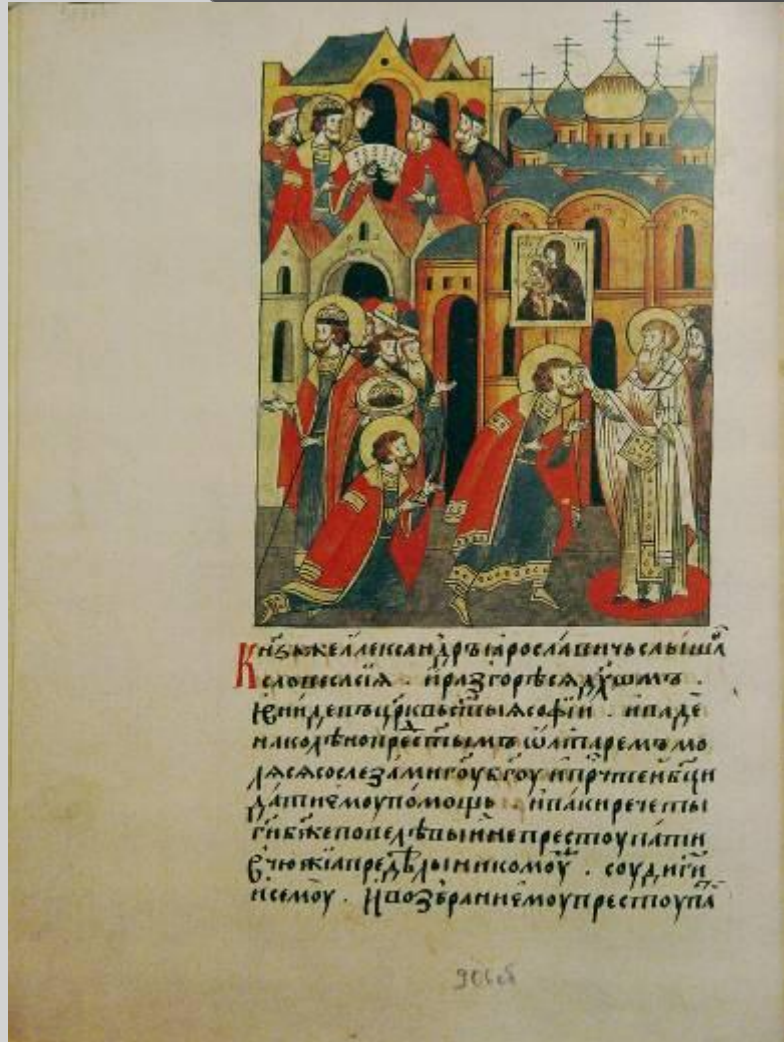 Кнѧзьжеалеѯандръꙗрославичьслыша
словесасїѧ . ираꙁгорѣсѧдꙋшамъ .
ивнидевъцр҃квьст҃ыѧсофїи . ипаде
наколѣнопрест҃ымъѡлтаремъмо
лѧсѧсослеꙁамигоу҃бг҃оуипрчⷭ҇тейбц҃и
датиемоупомощь . ипакиречеты
ги҃бж҃еповелѣвыйнепрестоупати
вчюжїапредѣлыникомоу . соудиги҃
исемоу . ивоꙁбраниемоупрестоупа
906об